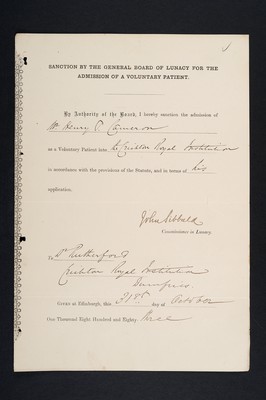 SANCTION BY THE GENERAL BOARD OF LUNACY FOR THE
ADMISSION OF A VOLUNTARY PATIENT.
By Authority of the Board, I hereby sanction the admission of
Mr Henry Cameron
as a Voluntary Patient into the Crichton Royal Institution
in accordance with the provisions of the Statute, and in terms of his
application.
John Sibbald
Commissioner in Lunacy.
To Dr Rutherford
Crichton Royal Institution
Dumfries.
Given at Edinburgh, this 31st day of October
One Thousand Eight Hundred and Eighty-three